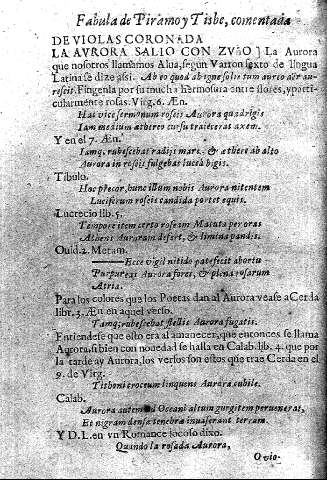 Fabula de Piramo y Tisbe, comentada
DE VIOLAS CORONADA
LA AVRORA SALIO CON ZVÑO] La Aurora
que nosotros llamamos Alua, segun Varron sexto de lingua
Latina se dize assi. Ab eo quod ab igne solis tum aureo aër au-
rescit. Fingenla por su mucha hermosura entre flores, y par-
ticularmente rosas. Virg. 6. Æn.
Hac vice sermonum roseis Aurora quadrigis
Iam medium æthereo cursu traiecerat axem.
Y en el 7. Æn.
Iamq, rubescebat radijs mare, & æthere ab alto
Aurora in roseis fulgebat lutea bigis.
Tibulo.
Hoc precor, hunc illum nobis Aurora nitentem
Luciferum roseis candida portet equis.
Lucrecio lib. 5.
Tempore item certo roseam Matuta per oras
Ætheris Auroram defert, & lumina pandit.
Ouid. 2. Metam.
Ecce vigil nitido patefecit ab ortu
Purpureas Aurora fores, & plena rosarum
Atria.
Para los colores que los Poetas dan al Aurora vease a Cerda
libr. 3. Æn en aquel verso.
Iamq; rubescebat stellis Aurora fugatis.
Entiendese que esto era al amanecer, que entonces se llama
Aurora, si bien con nouedad se halla en Calab. lib. 4. que por
la tarde ay Aurora, los versos son estos que trae Cerda en el
9. de Virg.
Tithoni croceum linquens Aurora cubile.
Calab.
Aurora autem ad Oceani altum gurgitem peruenerat,
Et nigram densæ tenebræ inuaserant terram.
Y D. L. en vn Romance jocoso dixo.
Quando la rosada Aurora,
O vio-